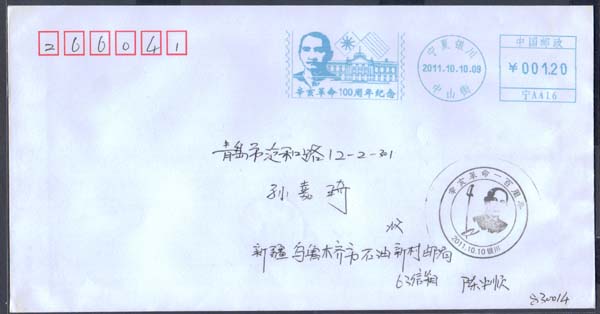 266041
辛亥革命100周年纪念
宁夏银川
2011.10.10.09
中山街
中国邮政
¥001.20
宁AA16
青岛市 路12-2-301
孙嘉琦
辛亥革命一百周年
2011.10.10 银川
新疆乌鲁木齐市石油新村邮局
63信箱 陈
830014